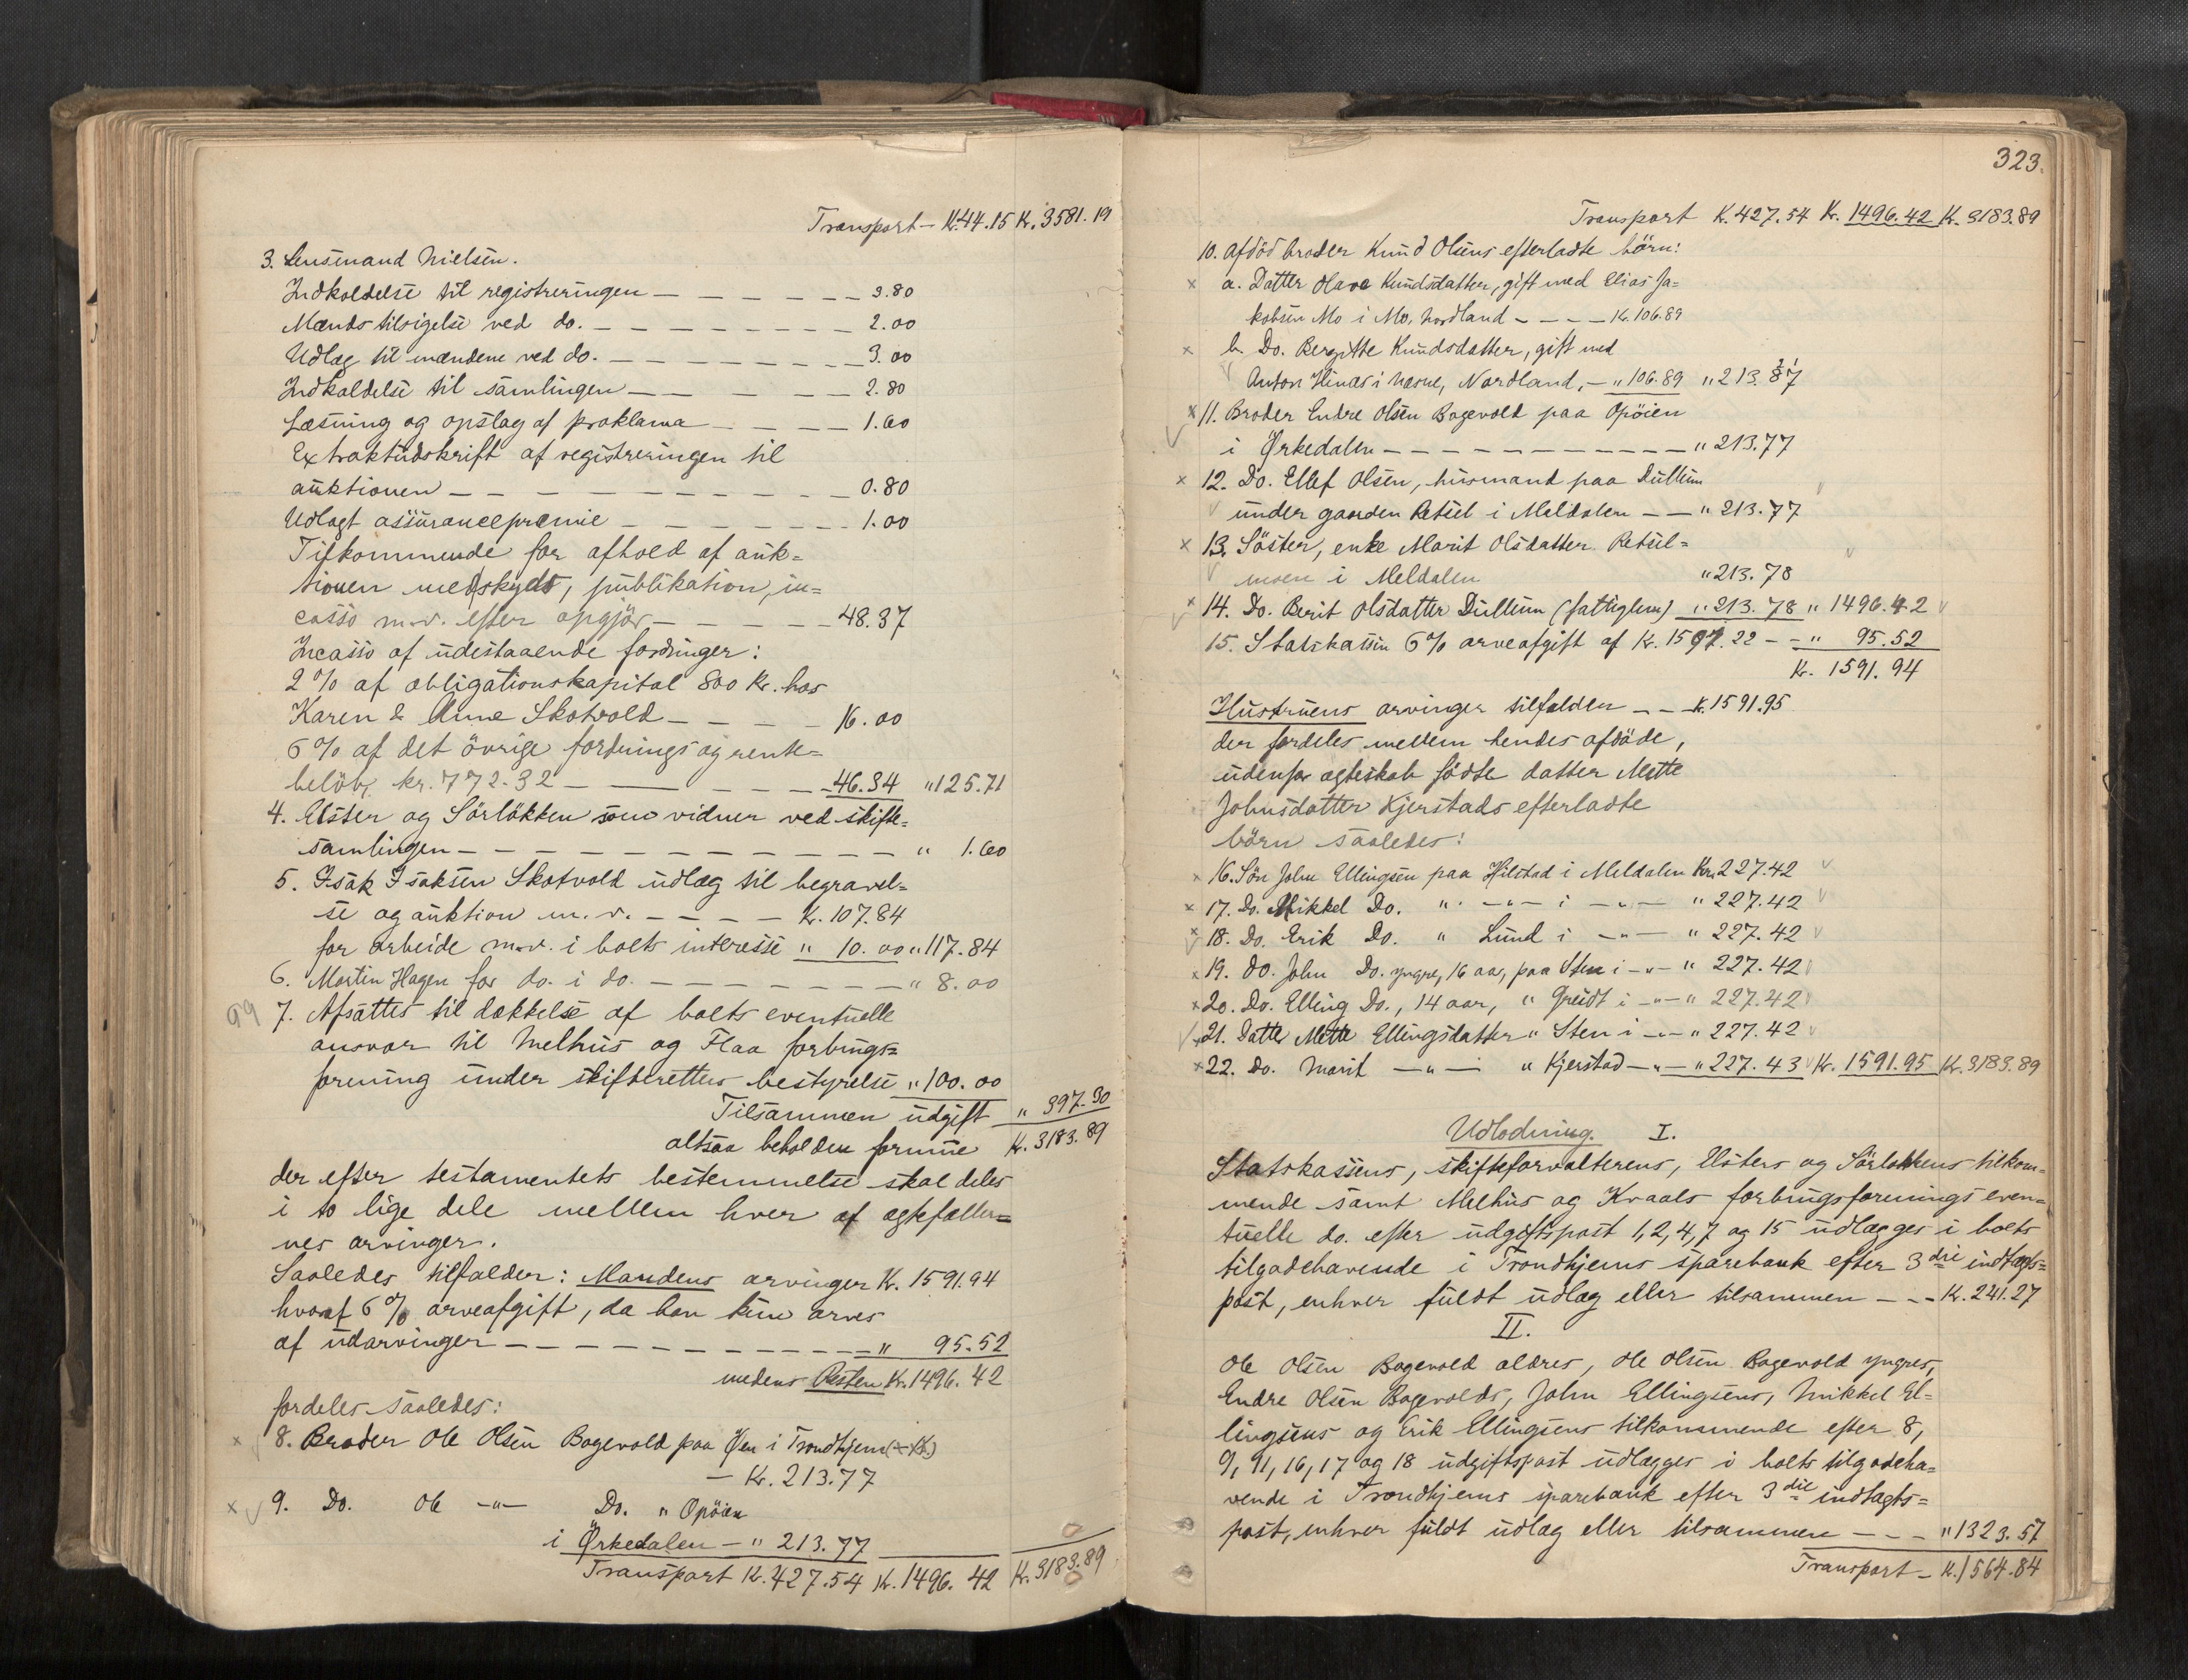 Transport – K. 44.15 Kr. 3581.19
3. Lensmand Nielsen.
Indkaldelse til registreringen — 3.80
Mænds tilsigelse ved do. — 2.00
Udlæg til mændene ved do. — 3.00
Indkaldelse til samlingen — 2.80
Læsning og opslag af proklama — 1.60
Extraktudskrift af registreringen til
auktionen — 0.80
Udlagt assurancepræmie — 1.00
Tilkommende for afhold af auk=
tionen med skyds, publikation, in=
casso m.v. efter opgjör — 48.37
Incasso af udestaaende fordringer:
2 % af obligationskapital 800 Kr. hos
Karen & Anne Skotvold — 16.00
6 % af det övrige fordrings og rente=
belöb, kr. 772.32 — 46.34 " 125.71
4. Elster og Sörlökken som vidner ved skifte=
samlingen — " 1.60
5. Isak Isaksen Skotvold udlæg til begravel=
se og auktion m.v. — Kr. 107.84
for arbeide m.v. i boets interesse " 10.00 " 117.84
6. Martin Hagen for do. i do. — " 8.00
99 7. Afsættes til dækkelse af boets eventuelle
ansvar til Melhus og Flaa forbrugs=
forening under skifterettens bestyrelse " 100.00
Tilsammen udgift " 397.30
altsaa beholden formue Kr. 3183.89
der efter testamentets bestemmelse skal deles
i to lige dele mellem hver af ægtefæller=
nes arvinger.
Saaledes tilfalder: Mandens arvinger Kr. 1591.94
hvoraf 6 % arveafgift, da han kun arves
af udarvinger — " 95.52
medens Resten Kr. 1496.42
fordeles saaledes:
8. Broder Ole Olsen Bagevold paa Öen i Trondhjem
— Kr. 213.77
9. Do. Ole –"– Do. " Opöien
i Ørkedalen — " 213.77
Transport Kr. 427.54 Kr. 1496.42 Kr. 3183.89
323.
Transport K. 427.54 Kr. 1496.42 K. 3183.89
10. Afdöd broder Knud Olsens efterladte börn:
a. Datter Olava Knudsdatter, gift med Elias Ja=
kobsen Mo i Mo, Nordland — Kr. 106.89
b. Do. Bergitte Knudsdatter, gift med
Anton i Næsne, Nordland, — " 106.89 " 213.87
11. Broder Endre Olsen Bagevold paa Opöien
i Ørkedalen — " 213.77
12. Do. Ellef Olsen, husmand paa Dullum
under gaarden Resell i Meldalen — " 213.77
13. Söster, enke Marit Olsdatter Resell=
moen i Meldalen " 213.78
14. Do. Berit Olsdatter Dullum (fattiglem) " 213.78 " 1496.42
15. Statskassen 6 % arveafgift af Kr. 1591.22 – " 95.52
Kr. 1591.94
Hustruens arvinger tilfalden — K. 1591.95
der fordeles mellem hendes afdöde,
udenfor ægteskab födte datter Mette
Johnsdatter Kjerstads efterladte
börn saaledes:
16. Sön John Ellingsen paa Hilstad i Meldalen Kr. 227.42
17. Do. Mikkel Do. " –"– i –"– " 227.42
18. Do. Erik Do. " Lund i –"– " 227.42
19. Do. John Do. yngre, 16 aar, paa Sten i –"– " 227.42
20. Do. Elling Do., 14 aar, " Grudt i –"– " 227.42
21. Datter Mette Ellingsdatter " Sten i –"– " 227.42
22. Do. Marit –"– i " Kjerstad –"– " 227.43 Kr. 1591.95 Kr. 3183.89
Udlodning. I.
Statskassens, skifteforvalterens, Elsters og Sörlökkens tilkom=
mende samt Melhus og Kvaals forbrugsforenings even=
tuelle do. efter udgiftspost 1, 2, 4, 7 og 15 udlægges i boets
tilgodehavende i Trondhjems sparebank efter 3die indtægts=
post, enhver fuldt udlæg eller tilsammen — Kr. 241.27
II.
Ole Olsen Bagevold ældres, Ole Olsen Bagevold yngres,
Endre Olsen Bagevolds, John Ellingsens, Mikkel El=
lingsens og Erik Ellingsens tilkommende efter 8,
9, 11, 16, 17 og 18 udgiftspost udlægges i boets tilgodeha=
vende i Trondhjems sparebank efter 3die indtægts=
post, enhver fuldt udlæg eller tilsammen — " 1323.57
Transport – K. 1564.84